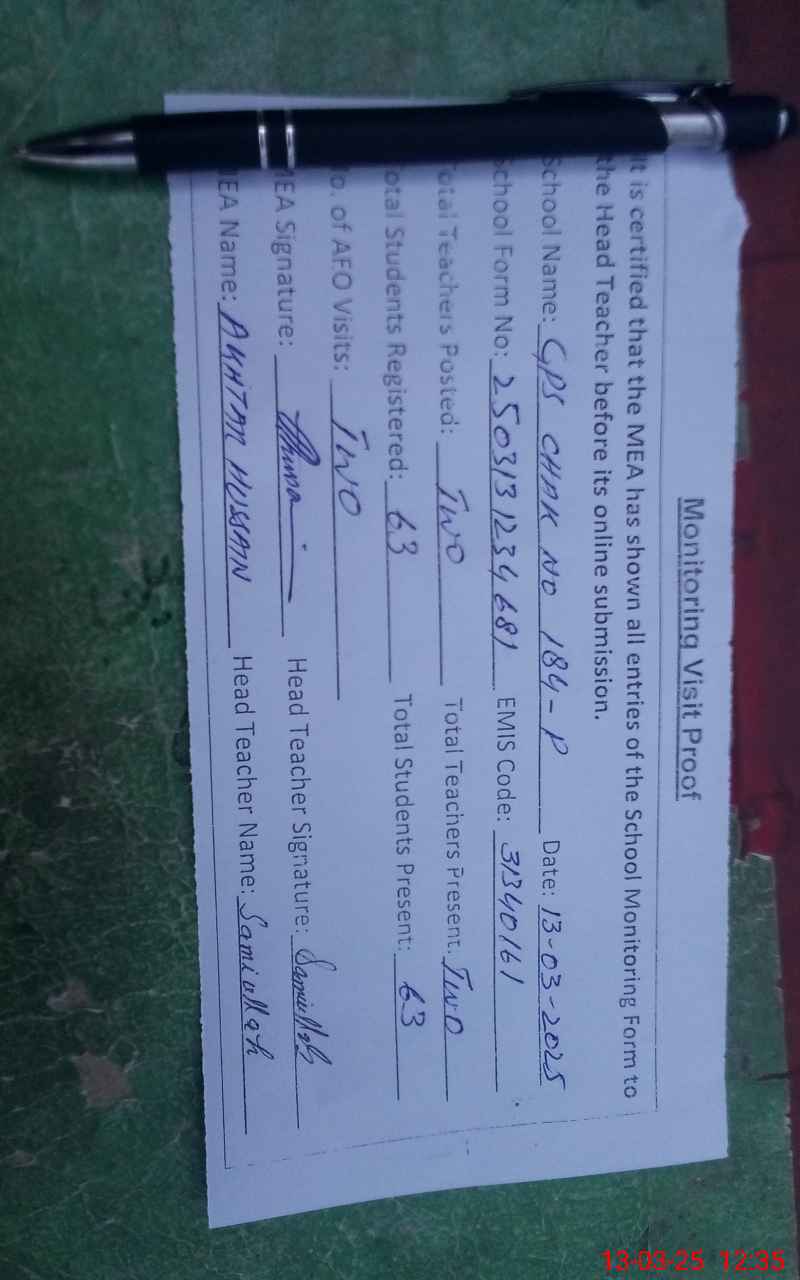 Monitoring Visit Proof
It is certified that the MEA has shown all entries of the School Monitoring Form to
the Head Teacher before its online submission.
School Name: GPS CHAK NO 184-P Date: 13-03-2025
School Form No: 2503131234681 EMIS Code: 31340161
Total Teachers Posted: TWO Total Teachers Present: TWO
Total Students Registered: 63 Total Students Present: 63
No. of AEO Visits: TWO
MEA Signature: Head Teacher Signature: Samiullah
MEA Name: AKHTAR HUSSAIN Head Teacher Name: Samiullah
13-03-25 12:35